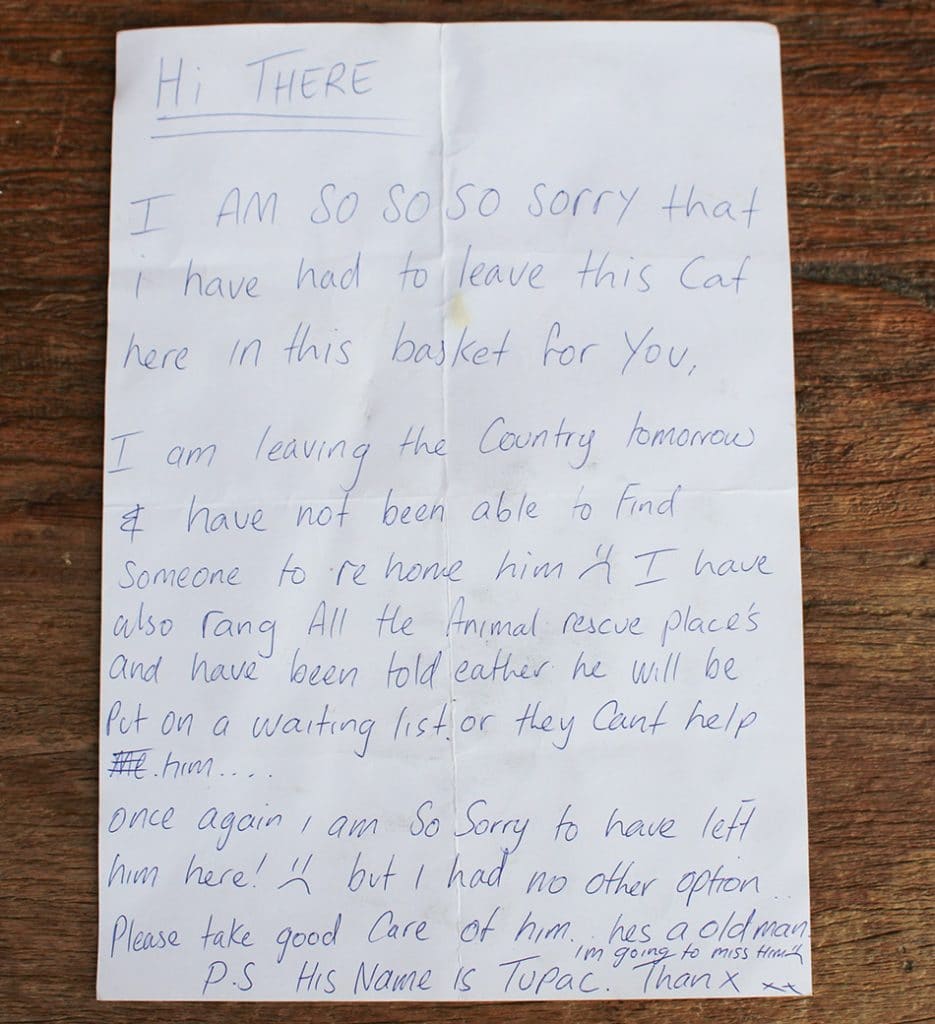 Hi THERE
I AM SO SO SO Sorry that
i have had to leave this Cat
here in this basket for You,
I am leaving the Country tomorrow
& have not been able to Find
Someone to re home him :( I have
also rang All the Animal rescue place's
and have been told eather he will be
Put on a waiting list. or they Cant help
Me. him....
once again i am So Sorry to have left
him here! :( but I had no other option..
Please take good Care of him... hes a old man
i'm going to miss Him :(
P.S His Name is Tupac. Thanx xx